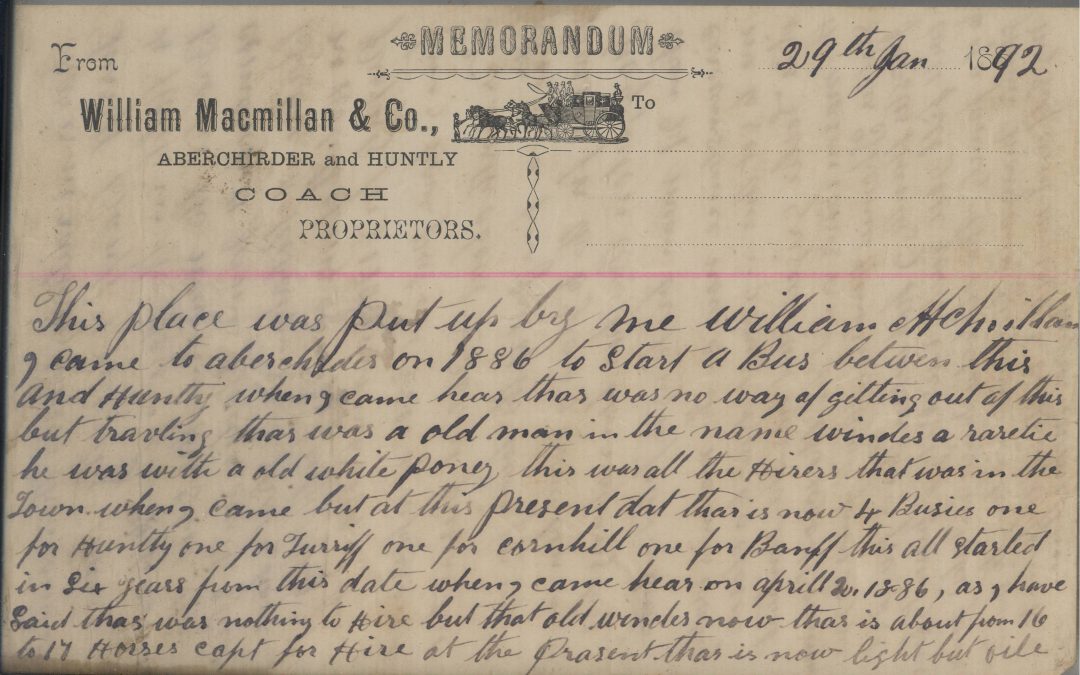 MEMORANDUM
From
29th Jan 1892
William Macmillan & Co.,
To
ABERCHIRDER and HUNTLY
COACH
PROPRIETORS.
This place was put up by me William
I came to aberchider on 1886 to Start a Bus betwen this
and Huntly when I came hear thar was no way of gitting out of this
but travling thar was a old man in the name windes a raretie
he was with a old white poney this was all the Hirers that was in the
Town when I came but at this present dat thar is now 4 Busies one
for Huntly one for Turriff one for cornhill one for Banff this all started
in Six years from this date when I came hear on aprill 20. 1886, as I have
Said thar was nothing to Hire but that old windes now thar is about from 16
to 17 Horses capt for Hire at the prasent thar is now light but oile